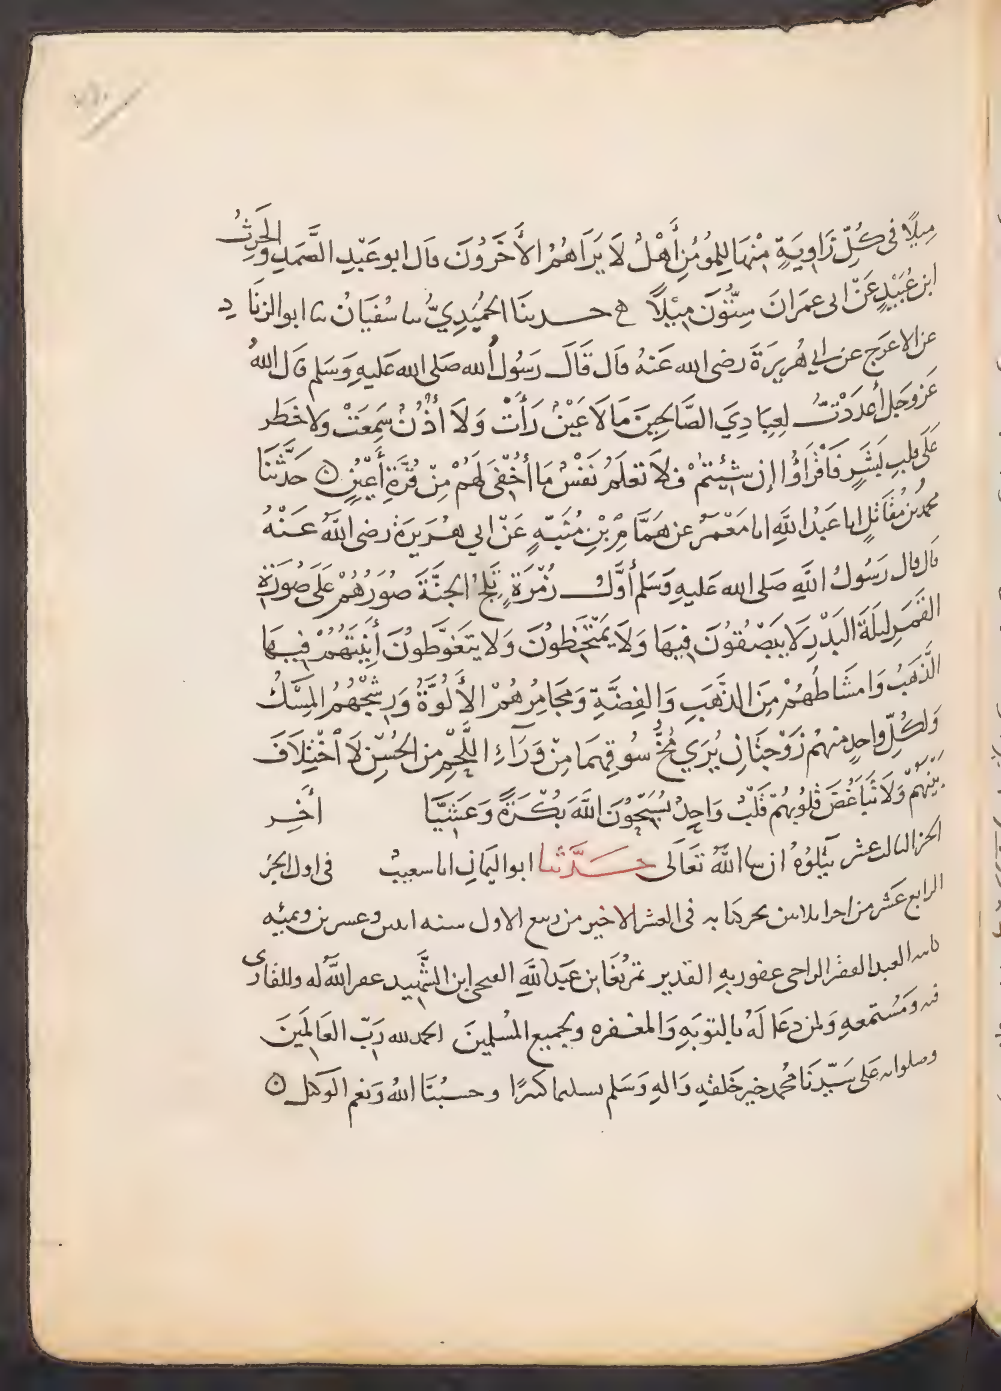 ميلًا في كُلِّ زَاوِيَةٍ مِنْهَا لِلمُومِنِ أَهْلٌ لَا يَرَاهُمُ الأَخَرُونَ قال ابو عَبْدِ الصَّمَدِ وَالحَرِثُ
ابن عُبَيْدٍ عَنْ ابى عمرَانَ سِتُّونَ مِيْلًا ح حدثنَا الحُمَيدِيُّ سا سُفيَانُ سا ابو الزنَادِ
عن الاعرَج عن ابي هُرَيرَةَ رضى الله عَنهُ قال قَالَ رَسُولُ الله صَلى الله عَليهِ وَسَلم قال اللهُ
عَز وجل أعدَدْتُ لعِبَادِيَ الصَّالِحِينَ مَا لَا عَيْنٌ رَأَتْ وَلَا أُذُنٌ سَمِعَتْ ولا خَطر
عَلى قلبِ بَشَرٍ فَاقْرَاوُا إن شِئيتُمْ فلَا تَعلَمُ نَفْسٌ مَا أُخْفِىَ لَهُمْ مِنْ قُرَّةِ أَعْيُنٍ ن حَدَّثَنَا
محمدُ بن مُقَاتلٍ انا عَبدُ اللَّهِ انا مَعْمَرٌ عن هَمَّامِ بْنِ مُنَبّهٍ عَنْ ابي هُرَيرَةَ رضى اللَّهُ عَنْهُ
قال قال رَسُولُ اللَّهِ صَلى الله عَليهِ وَسَلم أَوَّلُ زُمْرَةٍ تَلِجُ الجَنَّةَ صُوَرُهُمْ عَلَى صُورَةِ
القَمَرِ ليلَةَ البَدْرِ لَا يَبصُقُونَ فِيهَا وَلَا يَمْتَخِطُونَ وَلا يَتَغَوَّطُونَ أَنِيَتُهُمْ فِيهَا
الَّذهَبُ وَامشَاطُهُمْ مِنَ الذَّهَبِ وَالفِضَّةِ وَمَجَامِرُهُمْ الأَلُوَّةُ وَرَشْحُهُمُ المِسْكُ
وَلكُلِّ واحِدٍ منهُمْ زَوْجتَانِ يُرَي مُخُّ سُوقِهِمَا مِنْ وَرَاءِ اللَّحْمِ مِنَ الحُسْنِ لَا اخْتِلَافَ
بَيْنَهُمْ وَلَا تَبَاغُضَ قُلوبُهُمْ قَلْبٌ وَاحِدٌ يُسَبِّحُونَ اللَّهَ بُكْرَةً وَعَشِيًّا أَخِر
الجز الثالث عشر يَتْلُوهُ ان سا اللَّهُ تَعَالَى حَدَّثَنَا ابو اليَمانِ انا سعيب فى اول الجز
الرابع عَشر من اجزا ثلاثين نحز كتابه فى العشر الاخير من ربيع الاول سنه اثنين وعسرين وميه
العبد الفقر الراحى عفو ربهِ القدير تمربُغَا بن عَبد اللَّهِ ابن الشَّهِيد عفر اللَّهُ له وللقارى
فيه وَمُسْتَمعهِ وَلمن دعَا لَهُ بالتوبَهِ وَالمغفره ولجميع المُسْلمينَ الحمد لله رَبّ العَالمَينَ
وصلواته عَلى سَيّدنَا مُحمد خير خَلقهِ وَالهِ وَسَلم تسليما كثيرًا وحسبُنَا اللهُ وَنعم الوكيل ن